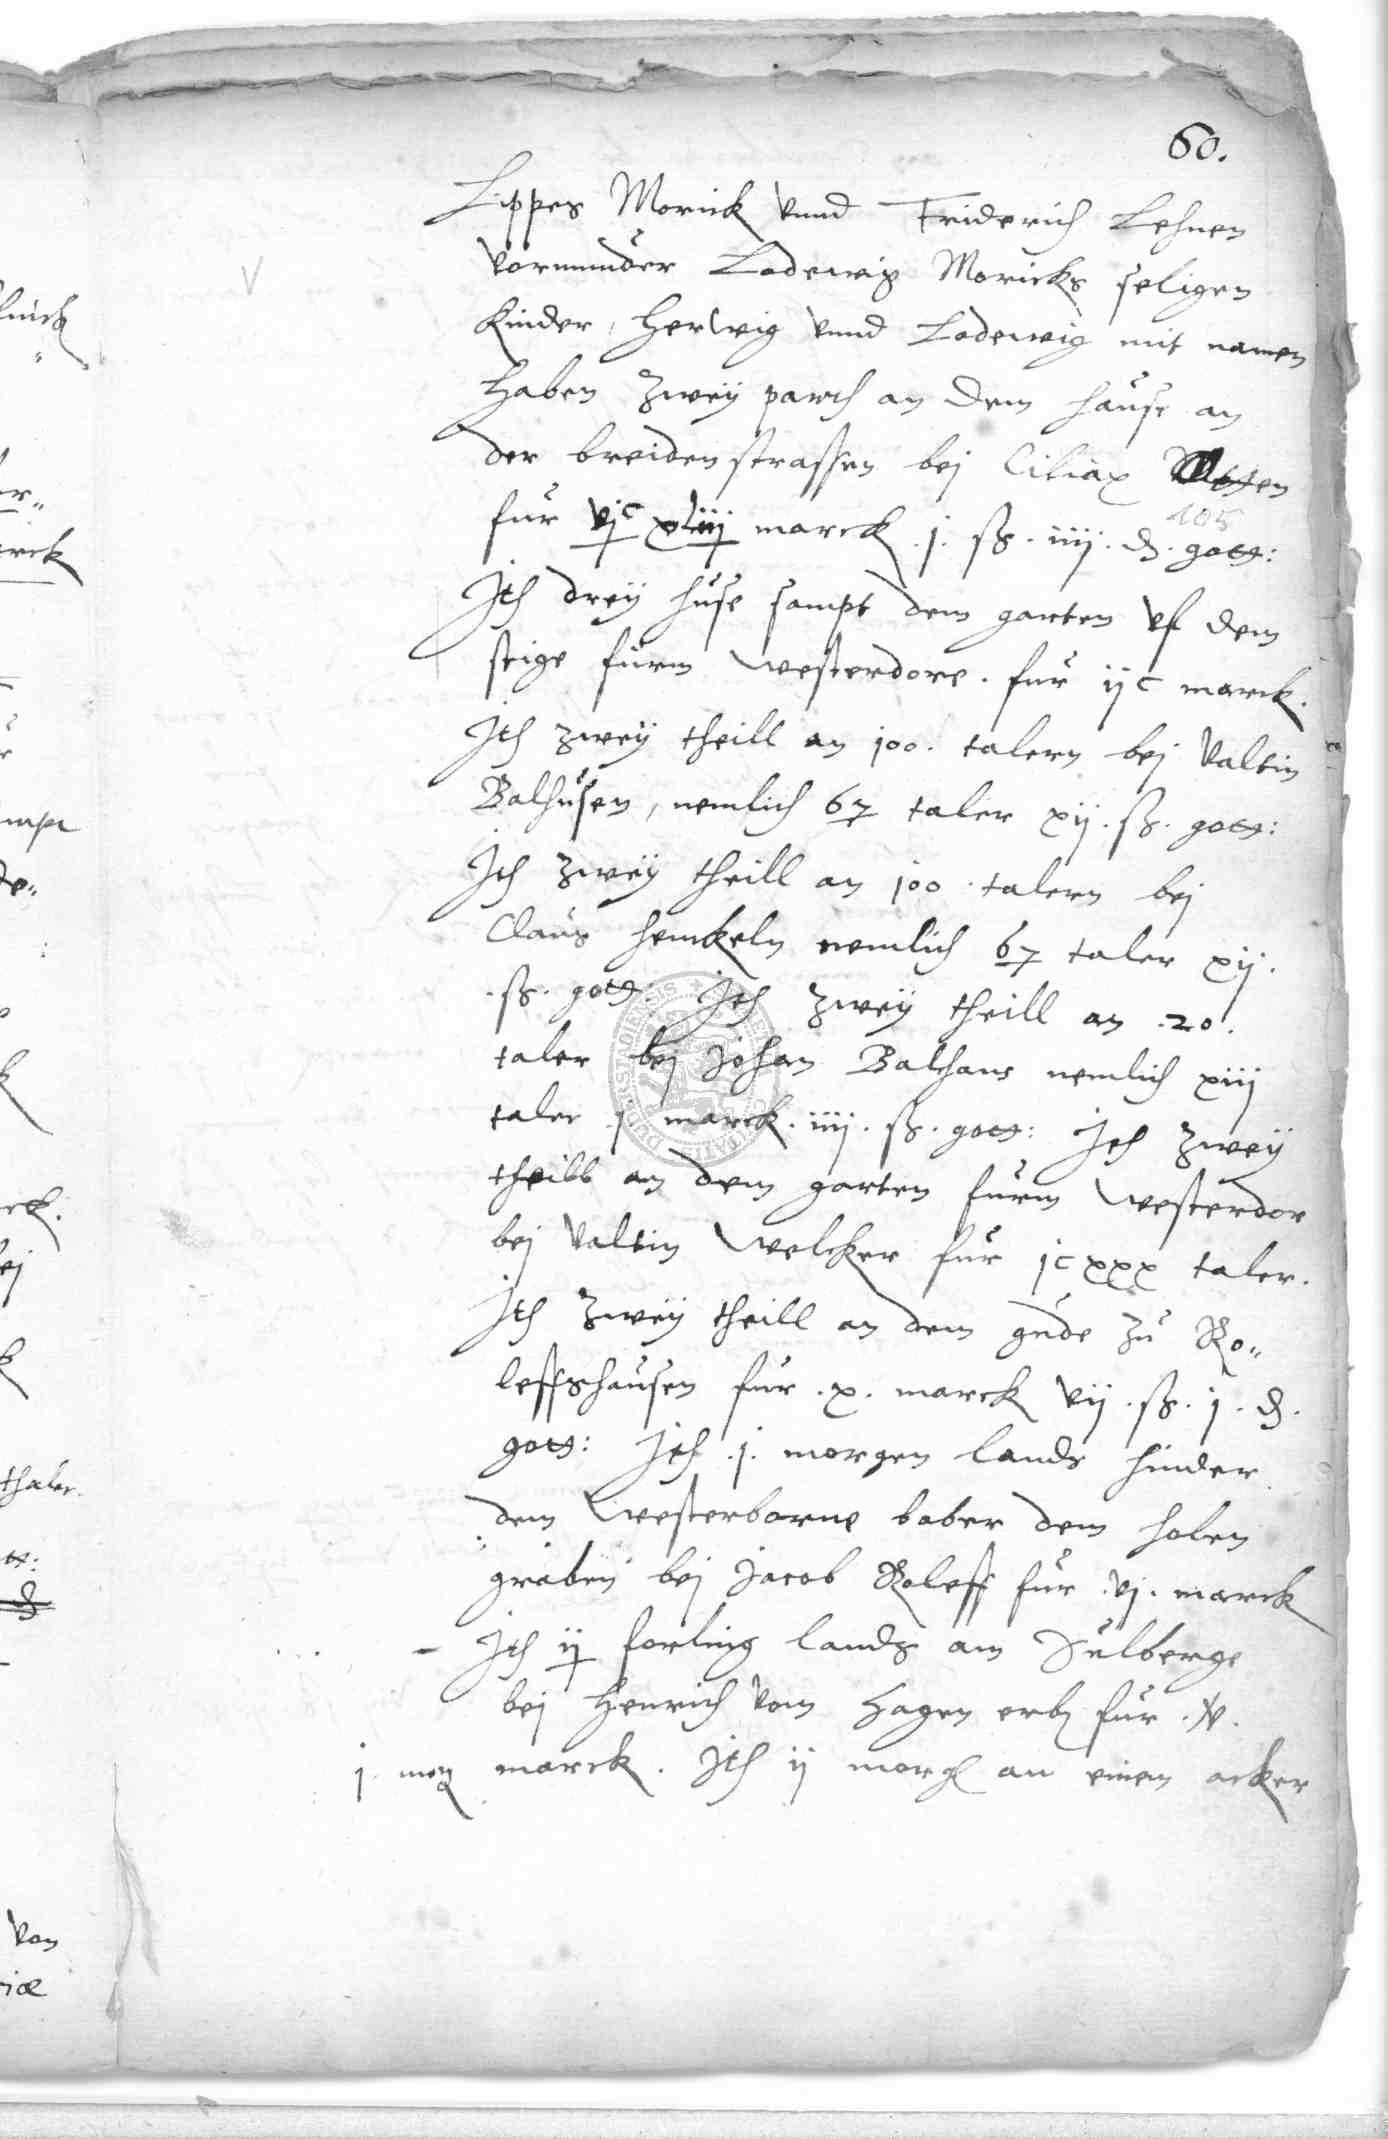 60.
Lippes Morick vnnd Friderich Lehnen
vormunder Lodewig Moricks seligen
Kinder, Herwig vnnd Lodewig mit namen
haben zweÿ parth an dem hause an
der breidenstrassen bej Ciliax
105
fur vjc xliij marck .j. ß. iiij. d. gott:
Ith dreÿ huse sampt dem garten vf dem
stige furm Westerdore. fur ijc marck.
Ith zweÿ theill an 100. talern bej Valtin
Balhusen, nemlich 67 taler xij. ß. gott:
Ith zweÿ theill an 100. talern bej
Claus Henckeln nemlich 67 taler xij.
.ß. gott: Ith zweÿ theill an .20.
taler bej Johan Balhans nemlich xiij
taler j marck. iiij. ß. gott: Ith zweÿ
theill an dem garten furm Westerdor
bej Valtin Welcker fur jc xxx taler.
Ith zweÿ theill an dem gude zu Ro„
leffshausen fur .x. marck vij. ß. j. d.
gott: Ith .j. morgen lands hinder
dem Westerborne bober dem holen
graben bej Jacob Roleff fur .vj. marck
- Ith ij forling lands am Sulberge
bej Henrich vom Hagen erb fur .v.
j morg marck. Ith ij morg an einem acker